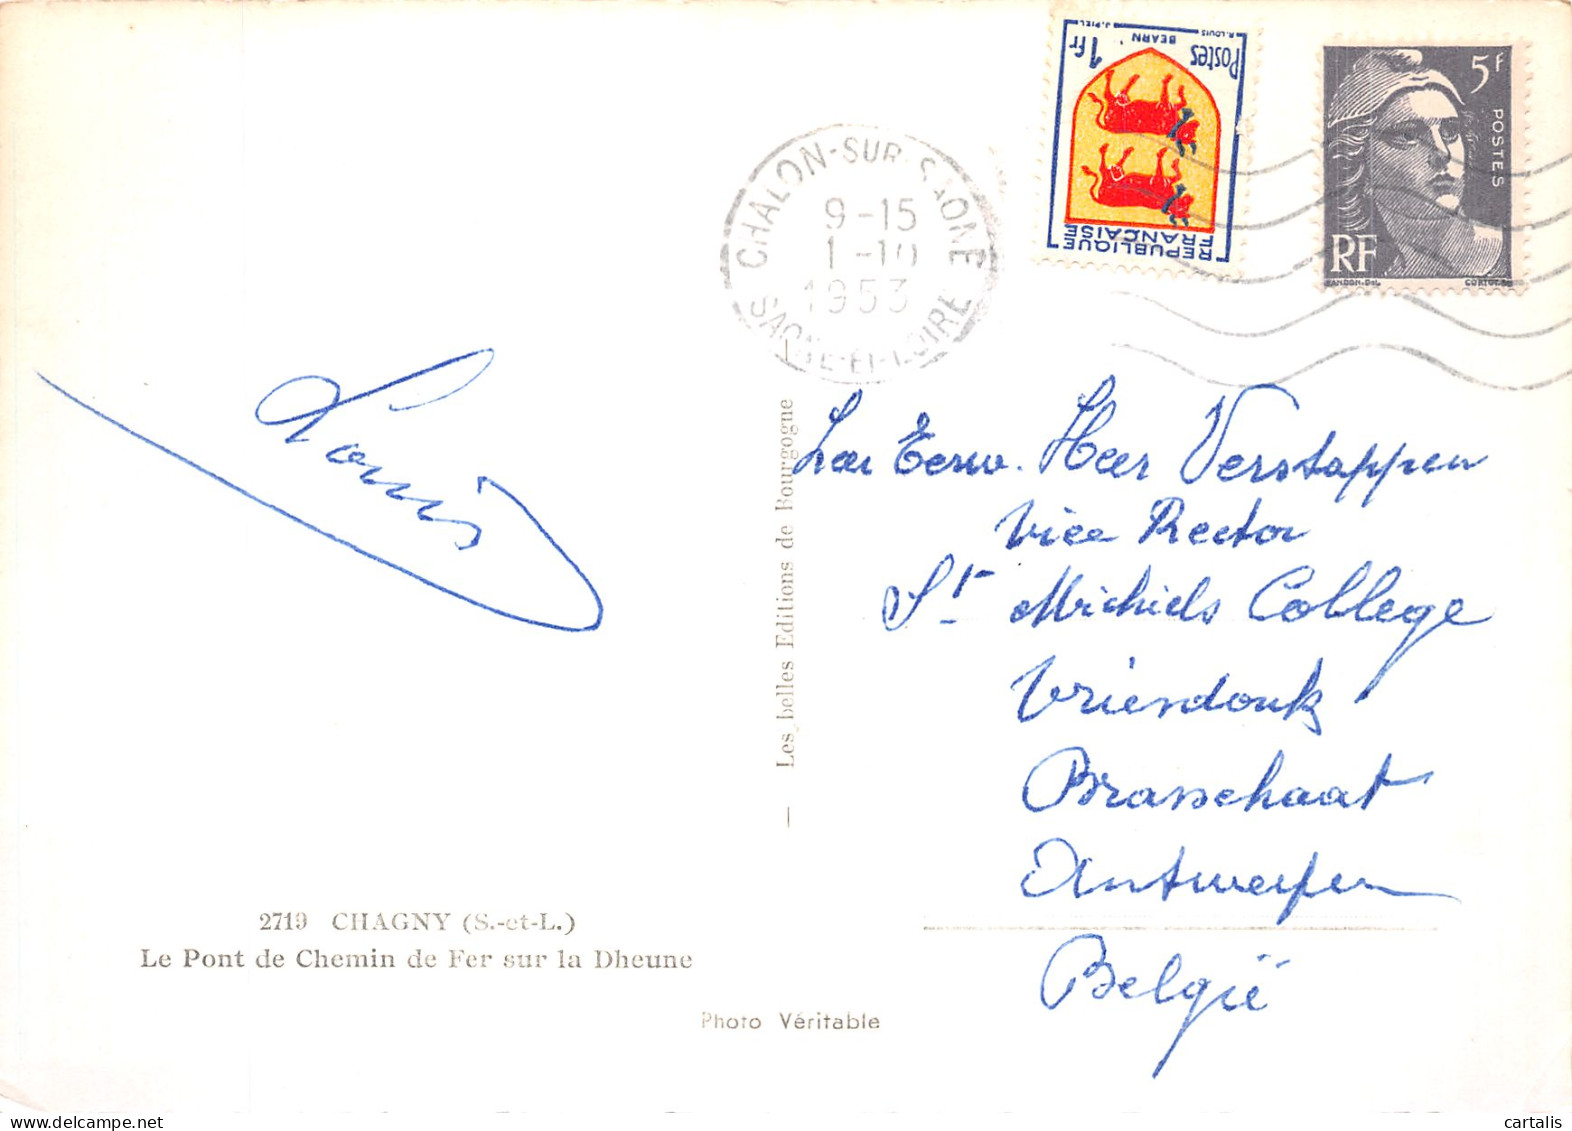 1fr
Postes
BEARN
R. LOUIS
J. PIEL
REPUBLIQUE
FRANÇAISE
5f
POSTES
RF
CORTOT
CHALON-SUR-SAONE
9-15
1-10
1953
SAONE-ET-LOIRE
Louis
Les belles Editions de Bourgogne
Eerw. Heer Verstappen
Vice Rector
St Michiels College
Vriesdonk
Brasschaat
Antwerpen
België
2719 CHAGNY (S.-et-L.)
Le Pont de Chemin de Fer sur la Dheune
Photo Véritable
cartalis
delcampe.net